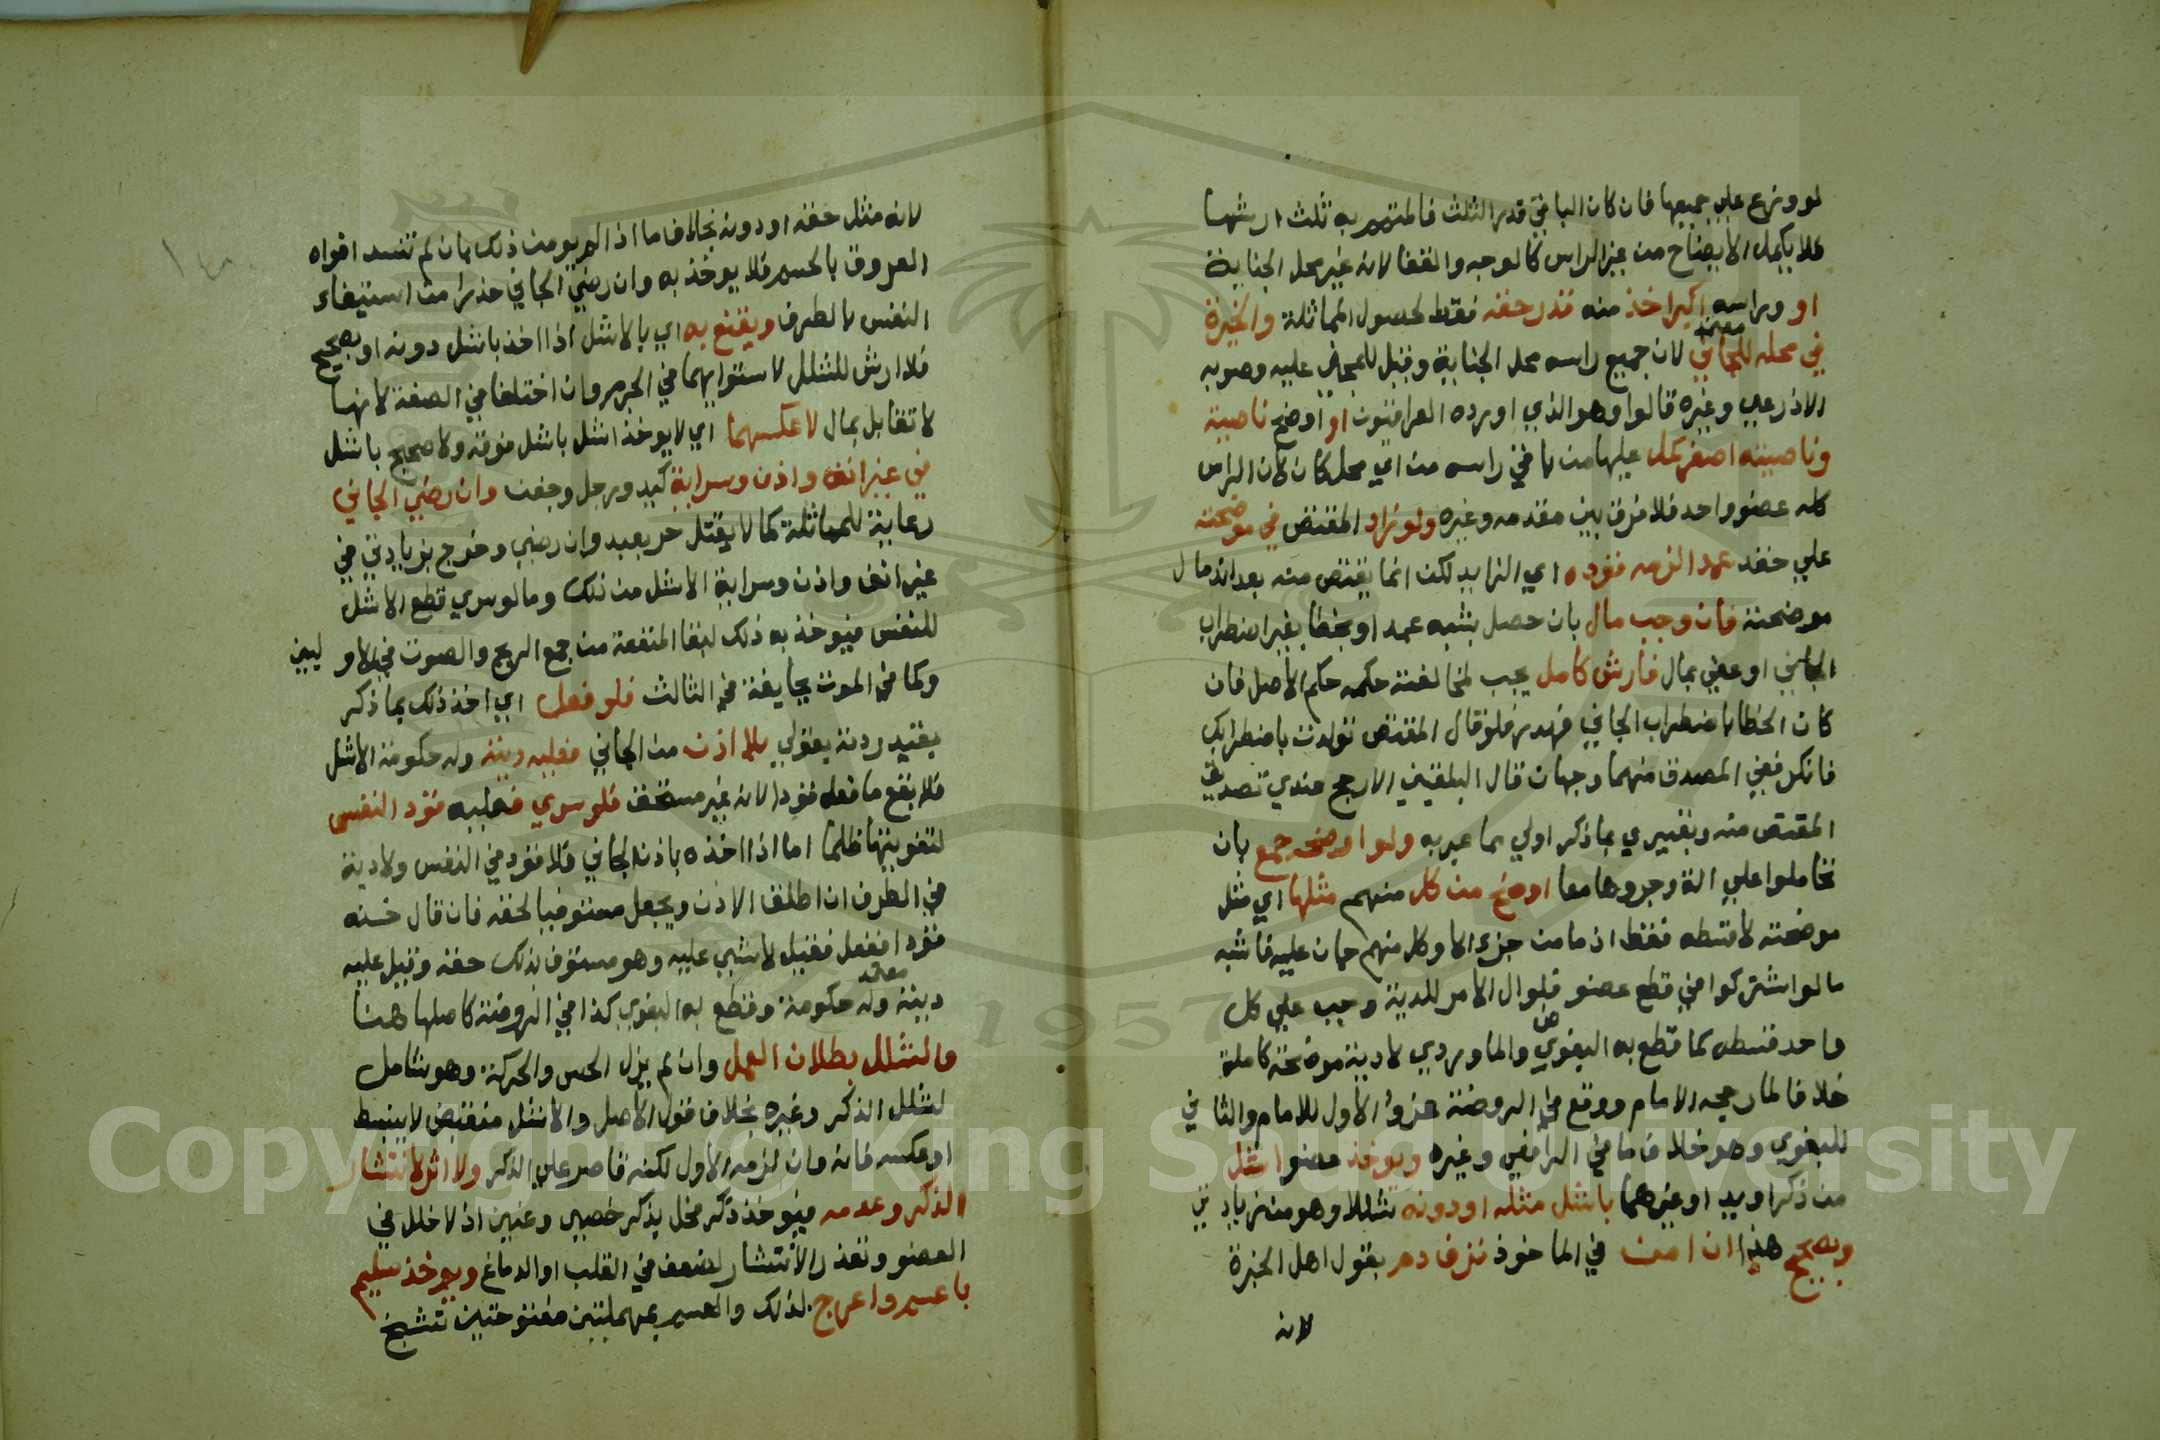 لو وزع علي جميعها فان كان الباقي قدر الثلث فالمتمم به ثلث ارشها
فلا يكمل الايضاح من غير الراس كالوجه والقفا لانه غير محل الجناية
او وراسه اكبر اخذ منه قدر حقه فقط لحصول المماثلة والخيرة
في محله للجاني لان جميع راسه محل الجناية وقيل للمجني عليه وصوبه
معتمد
الاذرعي وغيره قالوا وهو الذي اورده العراقيون او اوضح ناصية
وناصيته اصغر كمل عليها من باقي راسه من اي محل كان لان الراس
كله عضو واحد فلا فرق بين مقدمه وغيره ولو زاد المقتص في موضحته
علي حقه عمدا لزمه قوده اي الزايد لكن انما يقتص منه بعد اندمال
موضحته فان وجب مال بان حصل بشبه عمد او بخطا بغير اضطراب
الجاني او عفي بمال فارش كامل يجب لمخالفة حكمه حكم الاصل فان
كان الخطا باضطراب الجاني فهدر فلو قال المقتص تولدت باضطرابك
فانكر ففي المصدق منهما وجهان قال البلقيني الارجح عندي تصديق
المقتص منه وتعبيري بما ذكر اولي مما عبر به ولو اوضحه جمع بان
تحاملوا علي الة وجروها معا اوضح من كل منهم مثلها اي مثل
موضحته لا قسطه فقط اذ ما من جزء الا وكل منهم جان عليه فاشبه
ما لو اشتركوا في قطع عضو فلو ال الامر للدية وجب علي كل
واحد قسطه كما قطع به البغوي والماوردي لا دية موضحة كاملة
خلافا لما رجحه الامام ووقع في الروضة عزو الاول للامام والثاني
للبغوي وهو خلاف ما في الرافعي وغيره ويوخذ عضو اشل
من ذكر او يد او غيرهما باشل مثله او دونه شللا وهو من زيادتي
وبصحيح هذا ان امن في الماخوذ نزف دم بقول اهل الخبرة
لانه
لانه مثل حقه او دونه بخلاف ما اذا لم يومن ذلك بان لم تنسد افواه
العروق بالحسم فلا يوخذ به وان رضي الجاني حذرا من استيفاء
النفس بالطرف ويقنع به اي بالاشل اذا اخذ باشل دونه او بصحيح
فلا ارش للشلل لاستوايهما في الجرم وان اختلفا في الصفة لانها
لا تقابل بمال لا عكسهما اي لا يوخذ اشل باشل فوقه ولا صحيح باشل
في غير انف واذن وسراية كيد ورجل وجفن وان رضي الجاني
رعاية للمماثلة كما لا يقتل حر بعبد وان رضي وخرج بزيادتي في
غير انف واذن وسراية الاشل من ذلك وما لو سري قطع الاشل
للنفس فيوخذ به ذلك لبقا المنفعة من جمع الريح والصوت في الاولين
وكما في الموت بجايفة في الثالث فلو فعل اي اخذ ذلك بما ذكر
بقيد زدته بقولي بلا اذن من الجاني فعليه ديته وله حكومة الاشل
فلا يقع ما فعله قودا لانه غير مستحق فلو سري فعليه قود النفس
لتفويتها ظلما اما اذا اخذه باذن الجاني فلا قود في النفس ولا دية
في الطرف ان اطلق الاذن ويجعل مستوفيا لحقه فان قال خذه
قودا ففعل فقيل لا شي عليه وهو مستوف بذلك حقه وقيل عليه
معتمد
ديته وله حكومة وقطع به البغوي كذا في الروضة كاصلها هنا
والشلل بطلان العمل وان لم يزل الحس والحركة وهو شامل
لشلل الذكر وغيره بخلاف قول الاصل والاشل منقبض لا ينبسط
او عكسه فانه وان لزمه الاول لكنه قاصر علي الذكر ولا اثر لانتشار
الذكر وعدمه فيوخذ ذكر فحل بذكر خصي وعنين اذ لا خلل في
العضو وتعذر الانتشار لضعف في القلب او الدماغ ويوخذ سليم
باعسم واعرج لذلك والعسم بمهملتين مفتوحتين تشنج